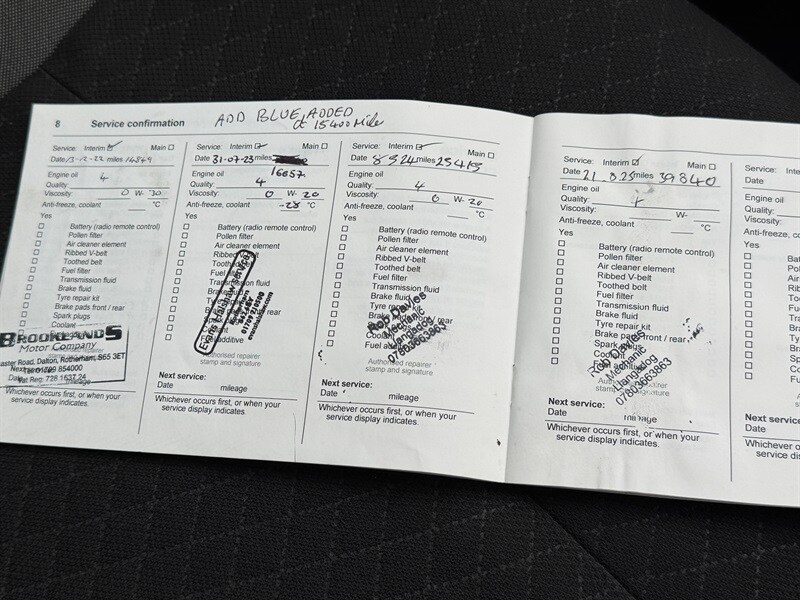 8 Service confirmation ADD BLUE ADDED
@ 15400 Mile
Service: Interim Main
Date 13-12-22 miles 14849
Engine oil 4
Quality:
Viscosity: 0 W- 30
Anti-freeze, coolant °C
Yes
Battery (radio remote control)
Pollen filter
Air cleaner element
Ribbed V-belt
Toothed belt
Fuel filter
Transmission fluid
Brake fluid
Tyre repair kit
Brake pads front / rear
Spark plugs
Coolant
BROOKLANDS
Motor Company
Road, Dalton, Rotherham, S65 3ET
Tel 01709 854000
Vat Reg: 728 1637 24
Date mileage
Whichever occurs first, or when your
service display indicates.
Service: Interim Main
Date 31-07-23 miles
16057
Engine oil
Quality: 4
Viscosity: 0 W- 20
Anti-freeze, coolant -28 °C
Yes
Battery (radio remote control)
Pollen filter
Air cleaner element
Ribbed V-belt
Authorised repairer
stamp and signature
Next service:
Date mileage
Whichever occurs first, or when your
service display indicates.
Service: Interim Main
Date 8 5 24 miles 25413
Engine oil
Quality: 4
Viscosity: 0 W- 20
Anti-freeze, coolant °C
Yes
Battery (radio remote control)
Pollen filter
Air cleaner element
Ribbed V-belt
Toothed belt
Fuel filter
Transmission fluid
Brake fluid
Tyre
Brake
Spark
Coolant
Fuel
Rob Davies
Mechanic
Llangadog
07803663863
Authorised repairer
stamp and signature
Next service:
Date mileage
Whichever occurs first, or when your
service display indicates.
Service: Interim Main
Date 21.8.25 miles 39840
Engine oil
Quality: 4
Viscosity: W-
Anti-freeze, coolant °C
Yes
Battery (radio remote control)
Pollen filter
Air cleaner element
Ribbed V-belt
Toothed belt
Fuel filter
Transmission fluid
Brake fluid
Tyre repair kit
Brake pads front / rear
Spark plugs
Coolant
Fuel
Rob Davies
Mechanic
Llangadog
07803663863
stamp and signature
Next service:
Date mileage
Whichever occurs first, or when your
service display indicates.
Service:
Date
Engine oil
Quality:
Viscosity:
Anti-freeze, co
Yes
Next service
Date
Whichever o
service dis